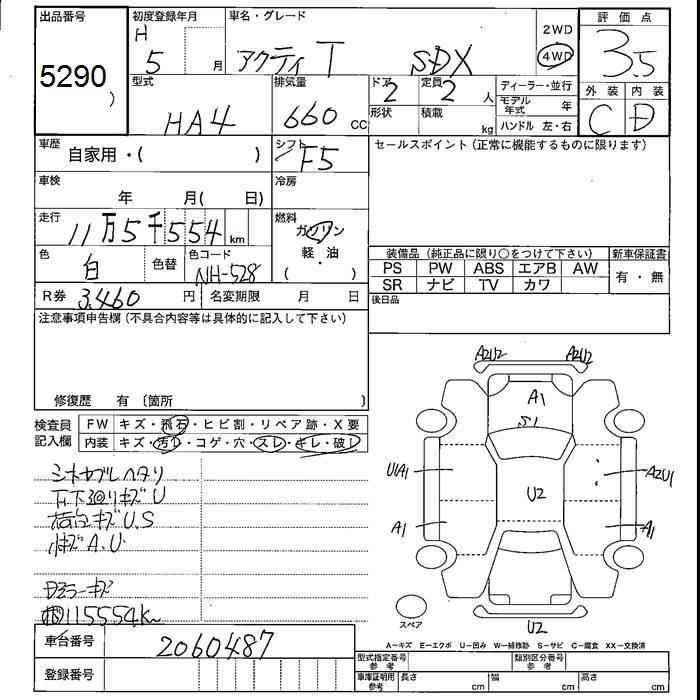 出品番号 初度登録年月 車名・グレード 2WD 評価点
H 5 月 アクティ T SDX 4WD 3.5
5290
型式 排気量 ドア 定員 ディーラー・並行 外装 内装
HA4 660 CC 2 2 人 モデル年式 年 C D
形状 積載 kg ハンドル 左・右
車歴 自家用・( ) シフト F5 セールスポイント(正常に機能するものに限ります)
車検 年 月( 日) 冷房
走行 11万5千554 km 燃料 ガソリン
軽・油
( )
色 白 色替 色コード NH-528
装備品(純正品に限り○をつけて下さい) 新車保証書
PS PW ABS エアB AW 有・無
SR ナビ TV カワ
R券 3,460 円 名変期限 月 日 後日品
注意事項申告欄(不具合内容等は具体的に記入して下さい)
修復歴 有 〔箇所 〕
検査員記入欄 FW キズ・飛石・ヒビ割・リペア跡・X要
内装 キズ・汚れ・コゲ・穴・スレ・キレ・破し
A2U2 A2U2
A1
S1
U1A1 U2 A2U1
A1 A1
スペア U2
荷台キズU.S
小キズA.U
115554K
車台番号 2060487
登録番号
A-キズ E-エクボ U-凹み W-補修跡 S-サビ C-腐食 XX-交換済
型式指定番号 参考 類別区分番号 参考
車庫証明用 参考 長さ cm 幅 cm 高さ cm